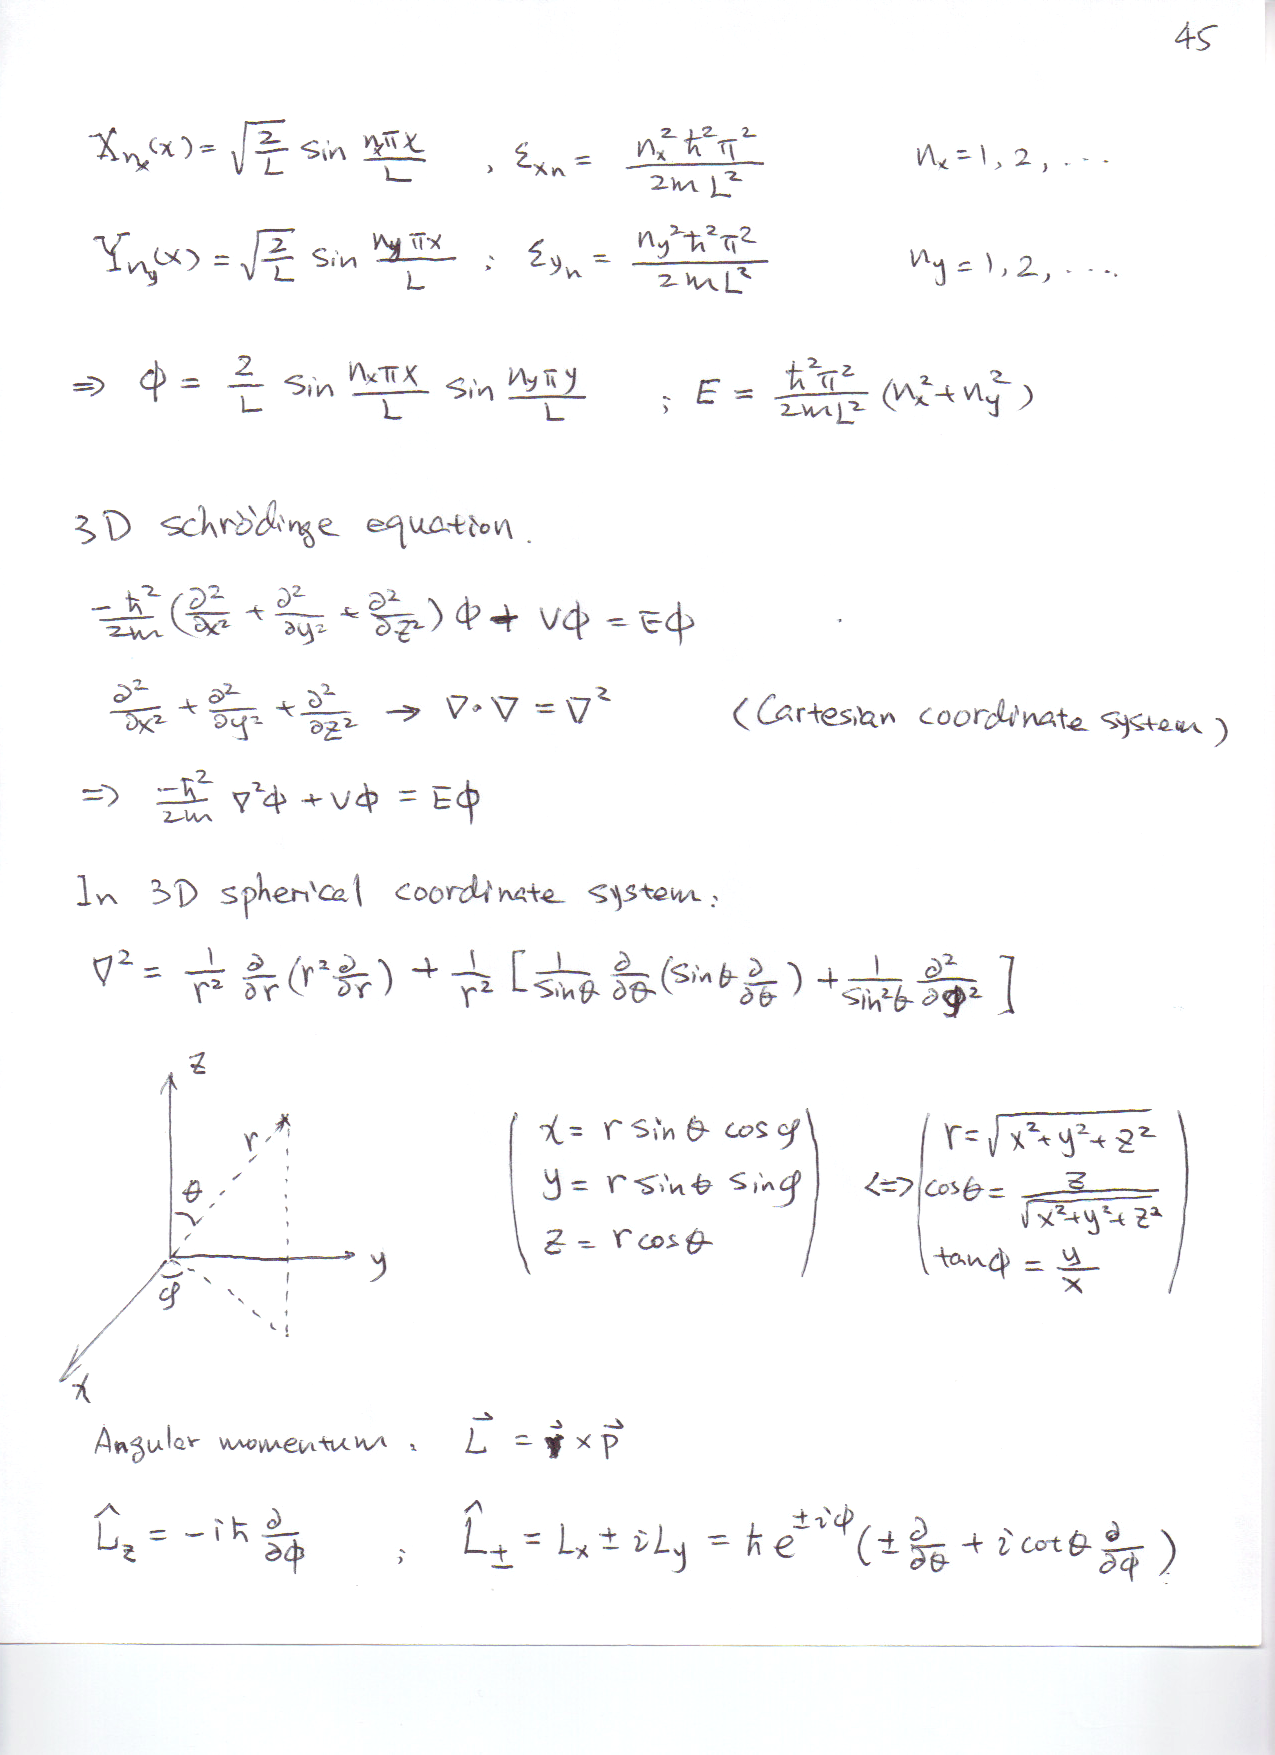 45
X_{n_x}(x) = √(2/L) sin (n_x π x)/L , ε_{xn} = (n_x² ħ² π²)/(2mL²) n_x = 1, 2, ....
Y_{n_y}(x) = √(2/L) sin (n_y π x)/L ; ε_{yn} = (n_y² ħ² π²)/(2mL²) n_y = 1, 2, ....
⇒ ϕ = 2/L sin (n_x π x)/L sin (n_y π y)/L ; E = (ħ² π²)/(2mL²) (n_x² + n_y²)
3D schrödinge equation.
-ħ²/2m (∂²/∂x² + ∂²/∂y² + ∂²/∂z²) ϕ + Vϕ = Eϕ
∂²/∂x² + ∂²/∂y² + ∂²/∂z² → ∇·∇ = ∇² (Cartesian coordinate system)
⇒ -ħ²/2m ∇²ϕ + Vϕ = Eϕ
In 3D spherical coordinate system:
∇² = 1/r² ∂/∂r (r² ∂/∂r) + 1/r² [1/sinθ ∂/∂θ (sinθ ∂/∂θ) + 1/sin²θ ∂²/∂φ²]
z
r
θ
y
φ
x
x = r sinθ cosφ
y = r sinθ sinφ
z = r cosθ
⇔
r = √(x² + y² + z²)
cosθ = z/√(x² + y² + z²)
tanϕ = y/x
Angular momentum, L⃗ = r⃗ × p⃗
L̂_z = -iħ ∂/∂ϕ ; L̂_± = L_x ± iL_y = ħ e^{±iϕ} (± ∂/∂θ + i cotθ ∂/∂ϕ)